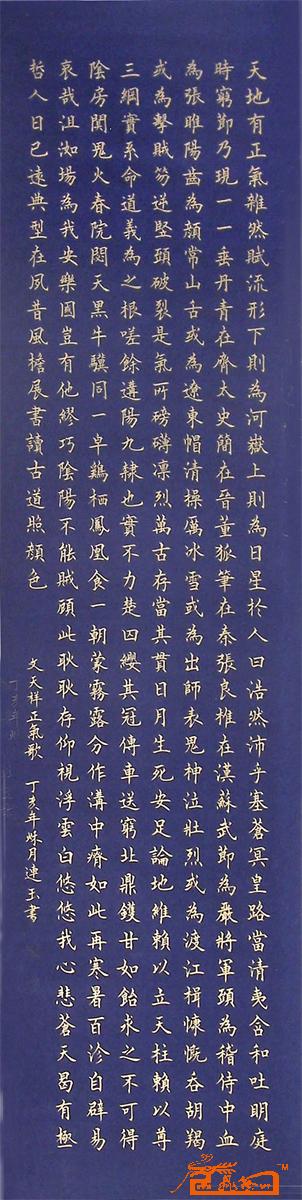 天地有正氣雜然賦流形下則為河嶽上則為日星於人曰浩然沛乎塞蒼冥皇路當清夷含和吐明庭
時窮節乃現一一垂丹青在齊太史簡在晉董狐筆在秦張良椎在漢蘇武節為嚴將軍頭為稽侍中血
為張睢陽齒為顏常山舌或為遼東帽清操厲冰雪或為出師表鬼神泣壯烈或為渡江楫慷慨吞胡羯
或為擊賊笏逆豎頭破裂是氣所磅礴凛烈萬古存當其貫日月生死安足論地維賴以立天柱賴以尊
三綱實系命道義為之根嗟餘遘陽九隸也實不力楚囚纓其冠傳車送窮北鼎鑊甘如飴求之不可得
陰房闃鬼火春院閟天黑牛驥同一皁鷄栖鳳凰食一朝蒙霧露分作溝中瘠如此再寒暑百沴自辟易
哀哉沮洳場為我安樂國豈有他繆巧陰陽不能賊顧此耿耿存仰視浮雲白悠悠我心悲蒼天曷有極
哲人日已遠典型在夙昔風檐展書讀古道照顏色
文天祥正氣歌 丁亥年秌月連玉書